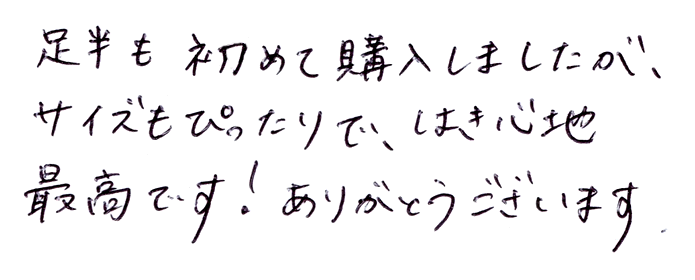 足半も初めて購入しましたが、
サイズもぴったりで、はき心地
最高です！ありがとうございます